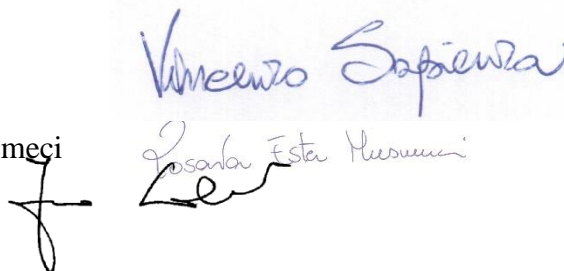 Vincenzo Sapienza
meci Rosaria Ester Musumeci